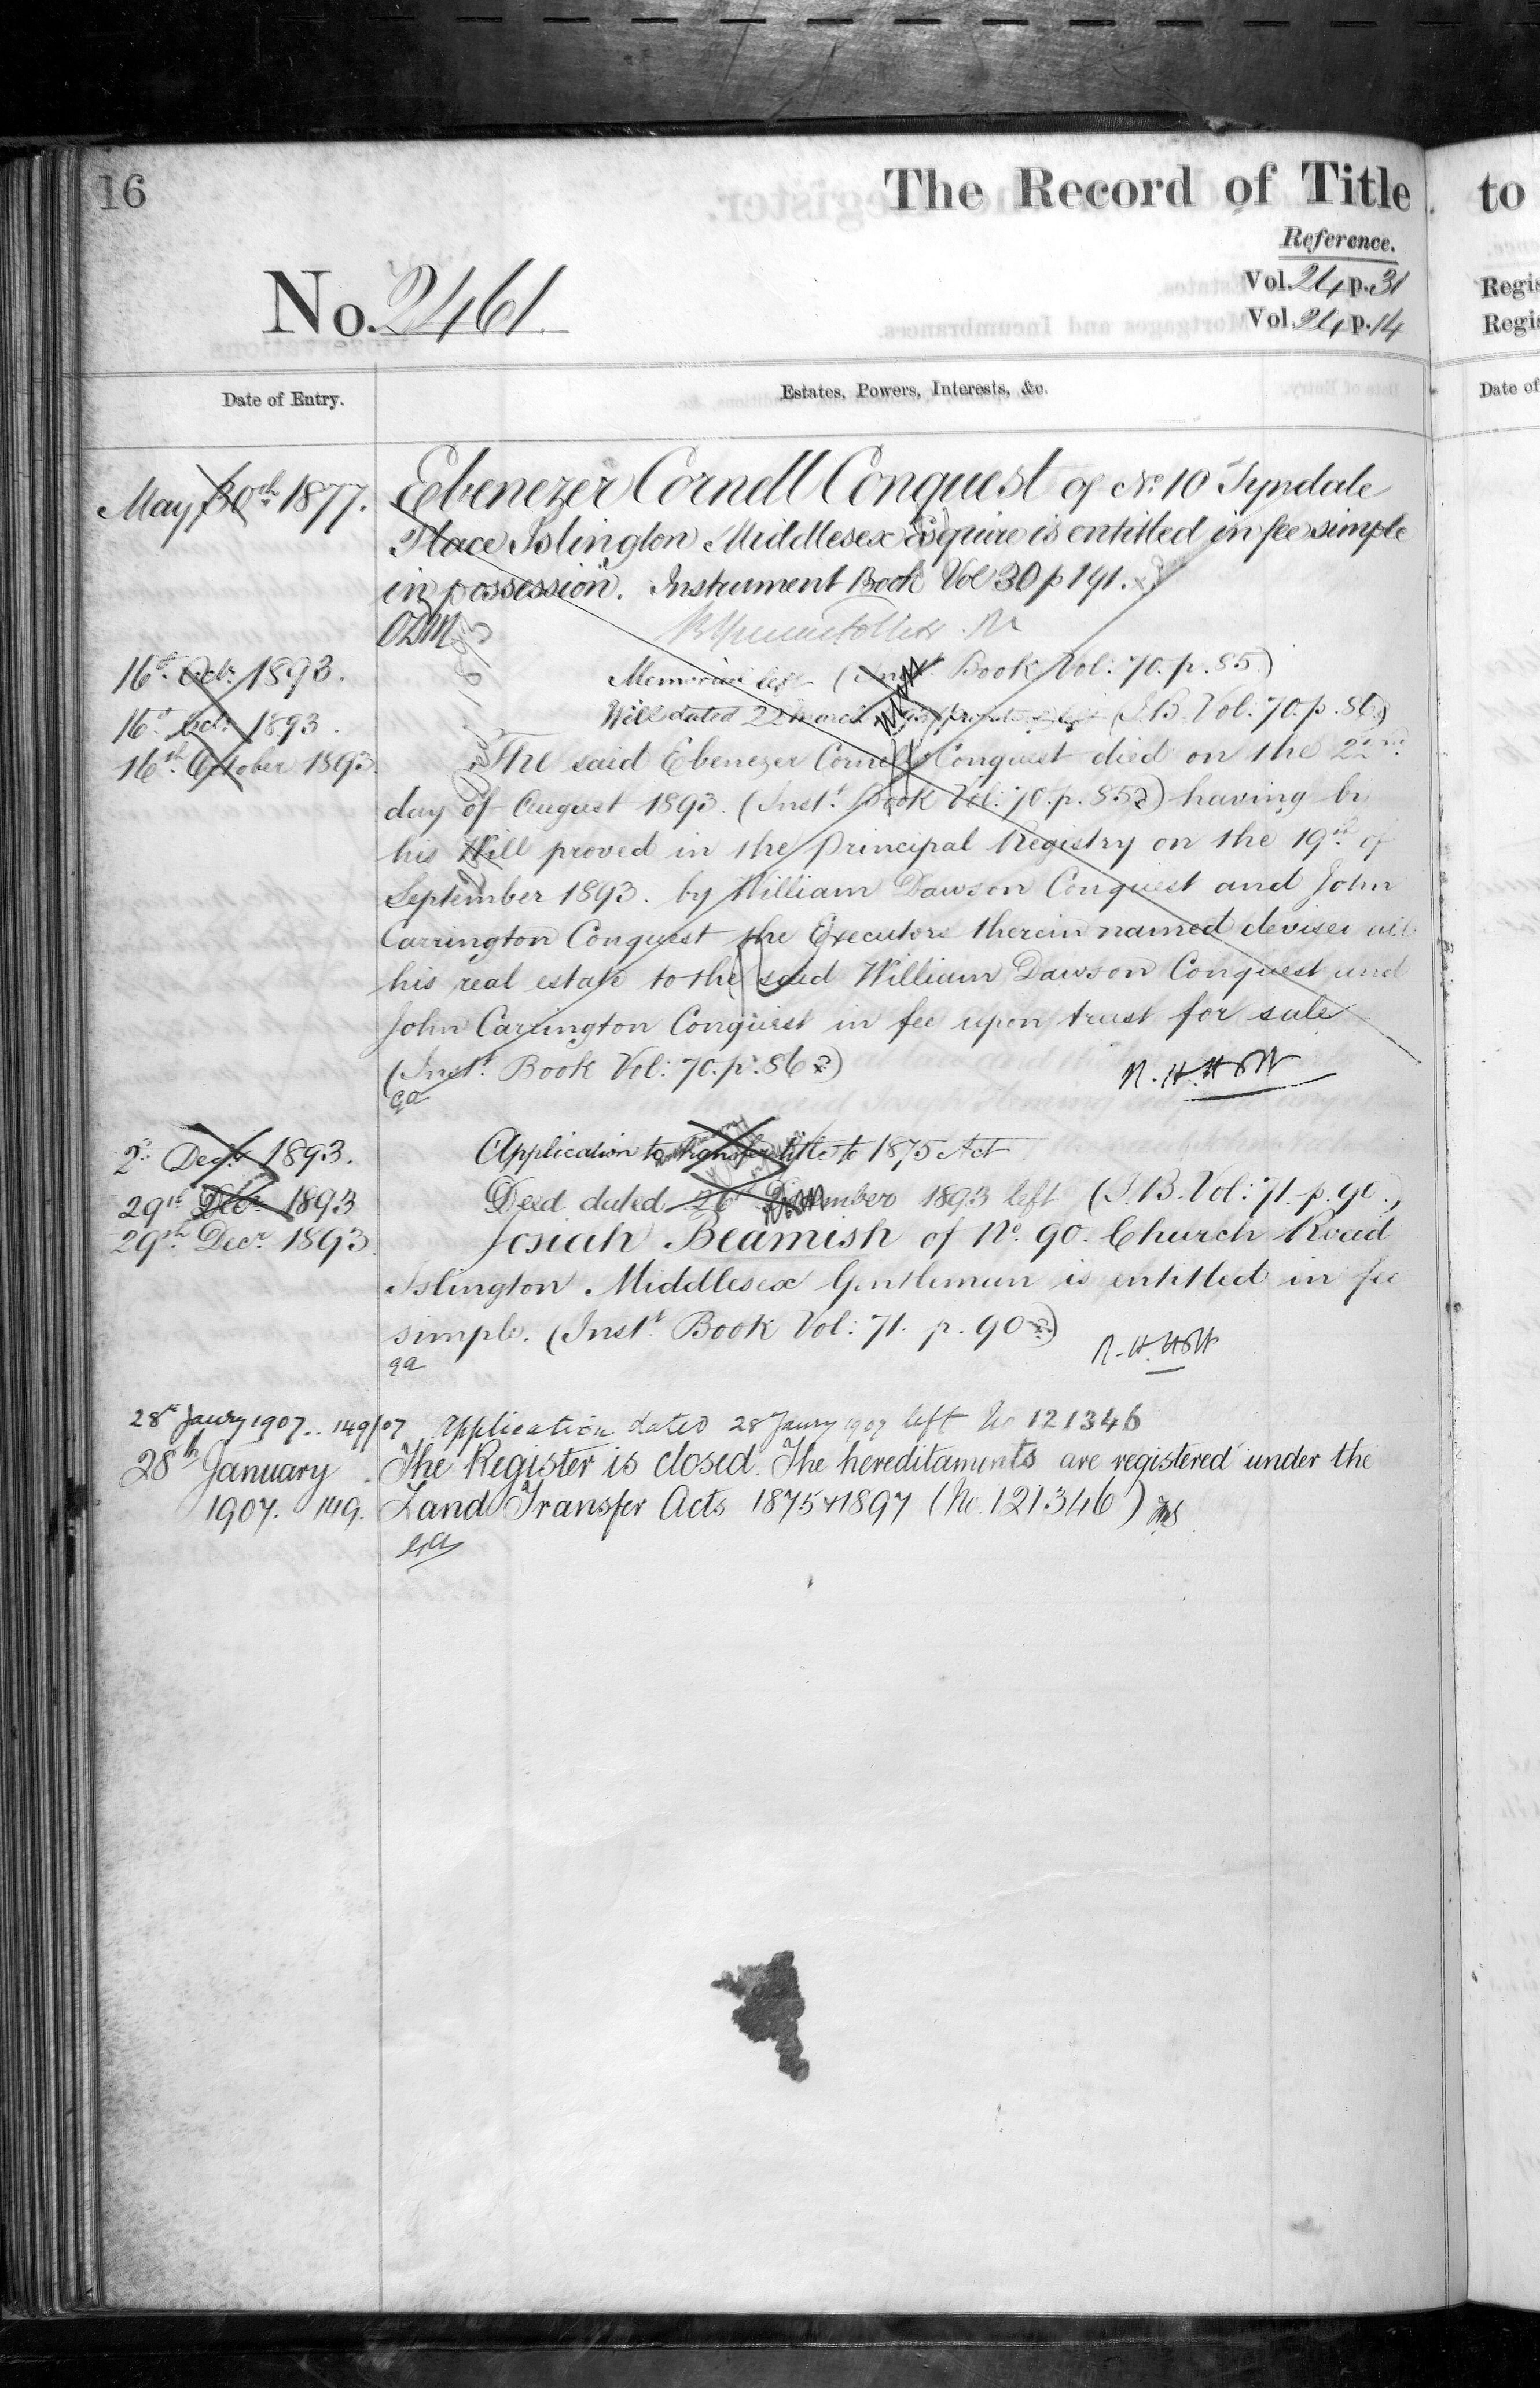 16
The Record of Title
to
Reference.
No. 2461.
Vol. 24 p. 31
Vol. 24 p. 14
Regis
Regis
Date of Entry.
Estates, Powers, Interests, &c.
Date of
May 30th 1877. Ebenezer Cornell Conquest of No. 10 Tyndale
Place Islington Middlesex Esquire is entitled in fee simple
in possession. Instrument Book Vol 30 p 191.
ODM
16th Octr. 1893. Memorial left (Inst. Book Vol: 70. p. 85.)
16th Octr. 1893. Will dated 22 March left (I.B. Vol: 70. p. 86.)
16th October 1893. The said Ebenezer Cornell Conquest died on the 22nd
day of August 1893. (Inst. Book Vol: 70. p. 85) having by
his Will proved in the Principal Registry on the 19th of
September 1893. by William Dawson Conquest and John
Carrington Conquest the Executors therein named devised all
his real estate to the said William Dawson Conquest and
John Carrington Conquest in fee upon trust for sale
(Inst. Book Vol: 70. p. 86)
ga
2d Decr. 1893. Application to Transfer title to 1875 Act
29th Decr. 1893 Deed dated 26 December 1893 left (I.B. Vol: 71. p. 90.)
29th Decr. 1893. Josiah Beamish of No. 90. Church Road
Islington Middlesex Gentleman is entitled in fee
simple. (Inst. Book Vol: 71. p. 90)
ga
28th Jaury 1907. 149/07 Application dated 28 Jaury 1907 left No 121346
28th January The Register is closed. The hereditaments are registered under the
1907. 149. Land Transfer Acts 1875 & 1897 (No. 121346)